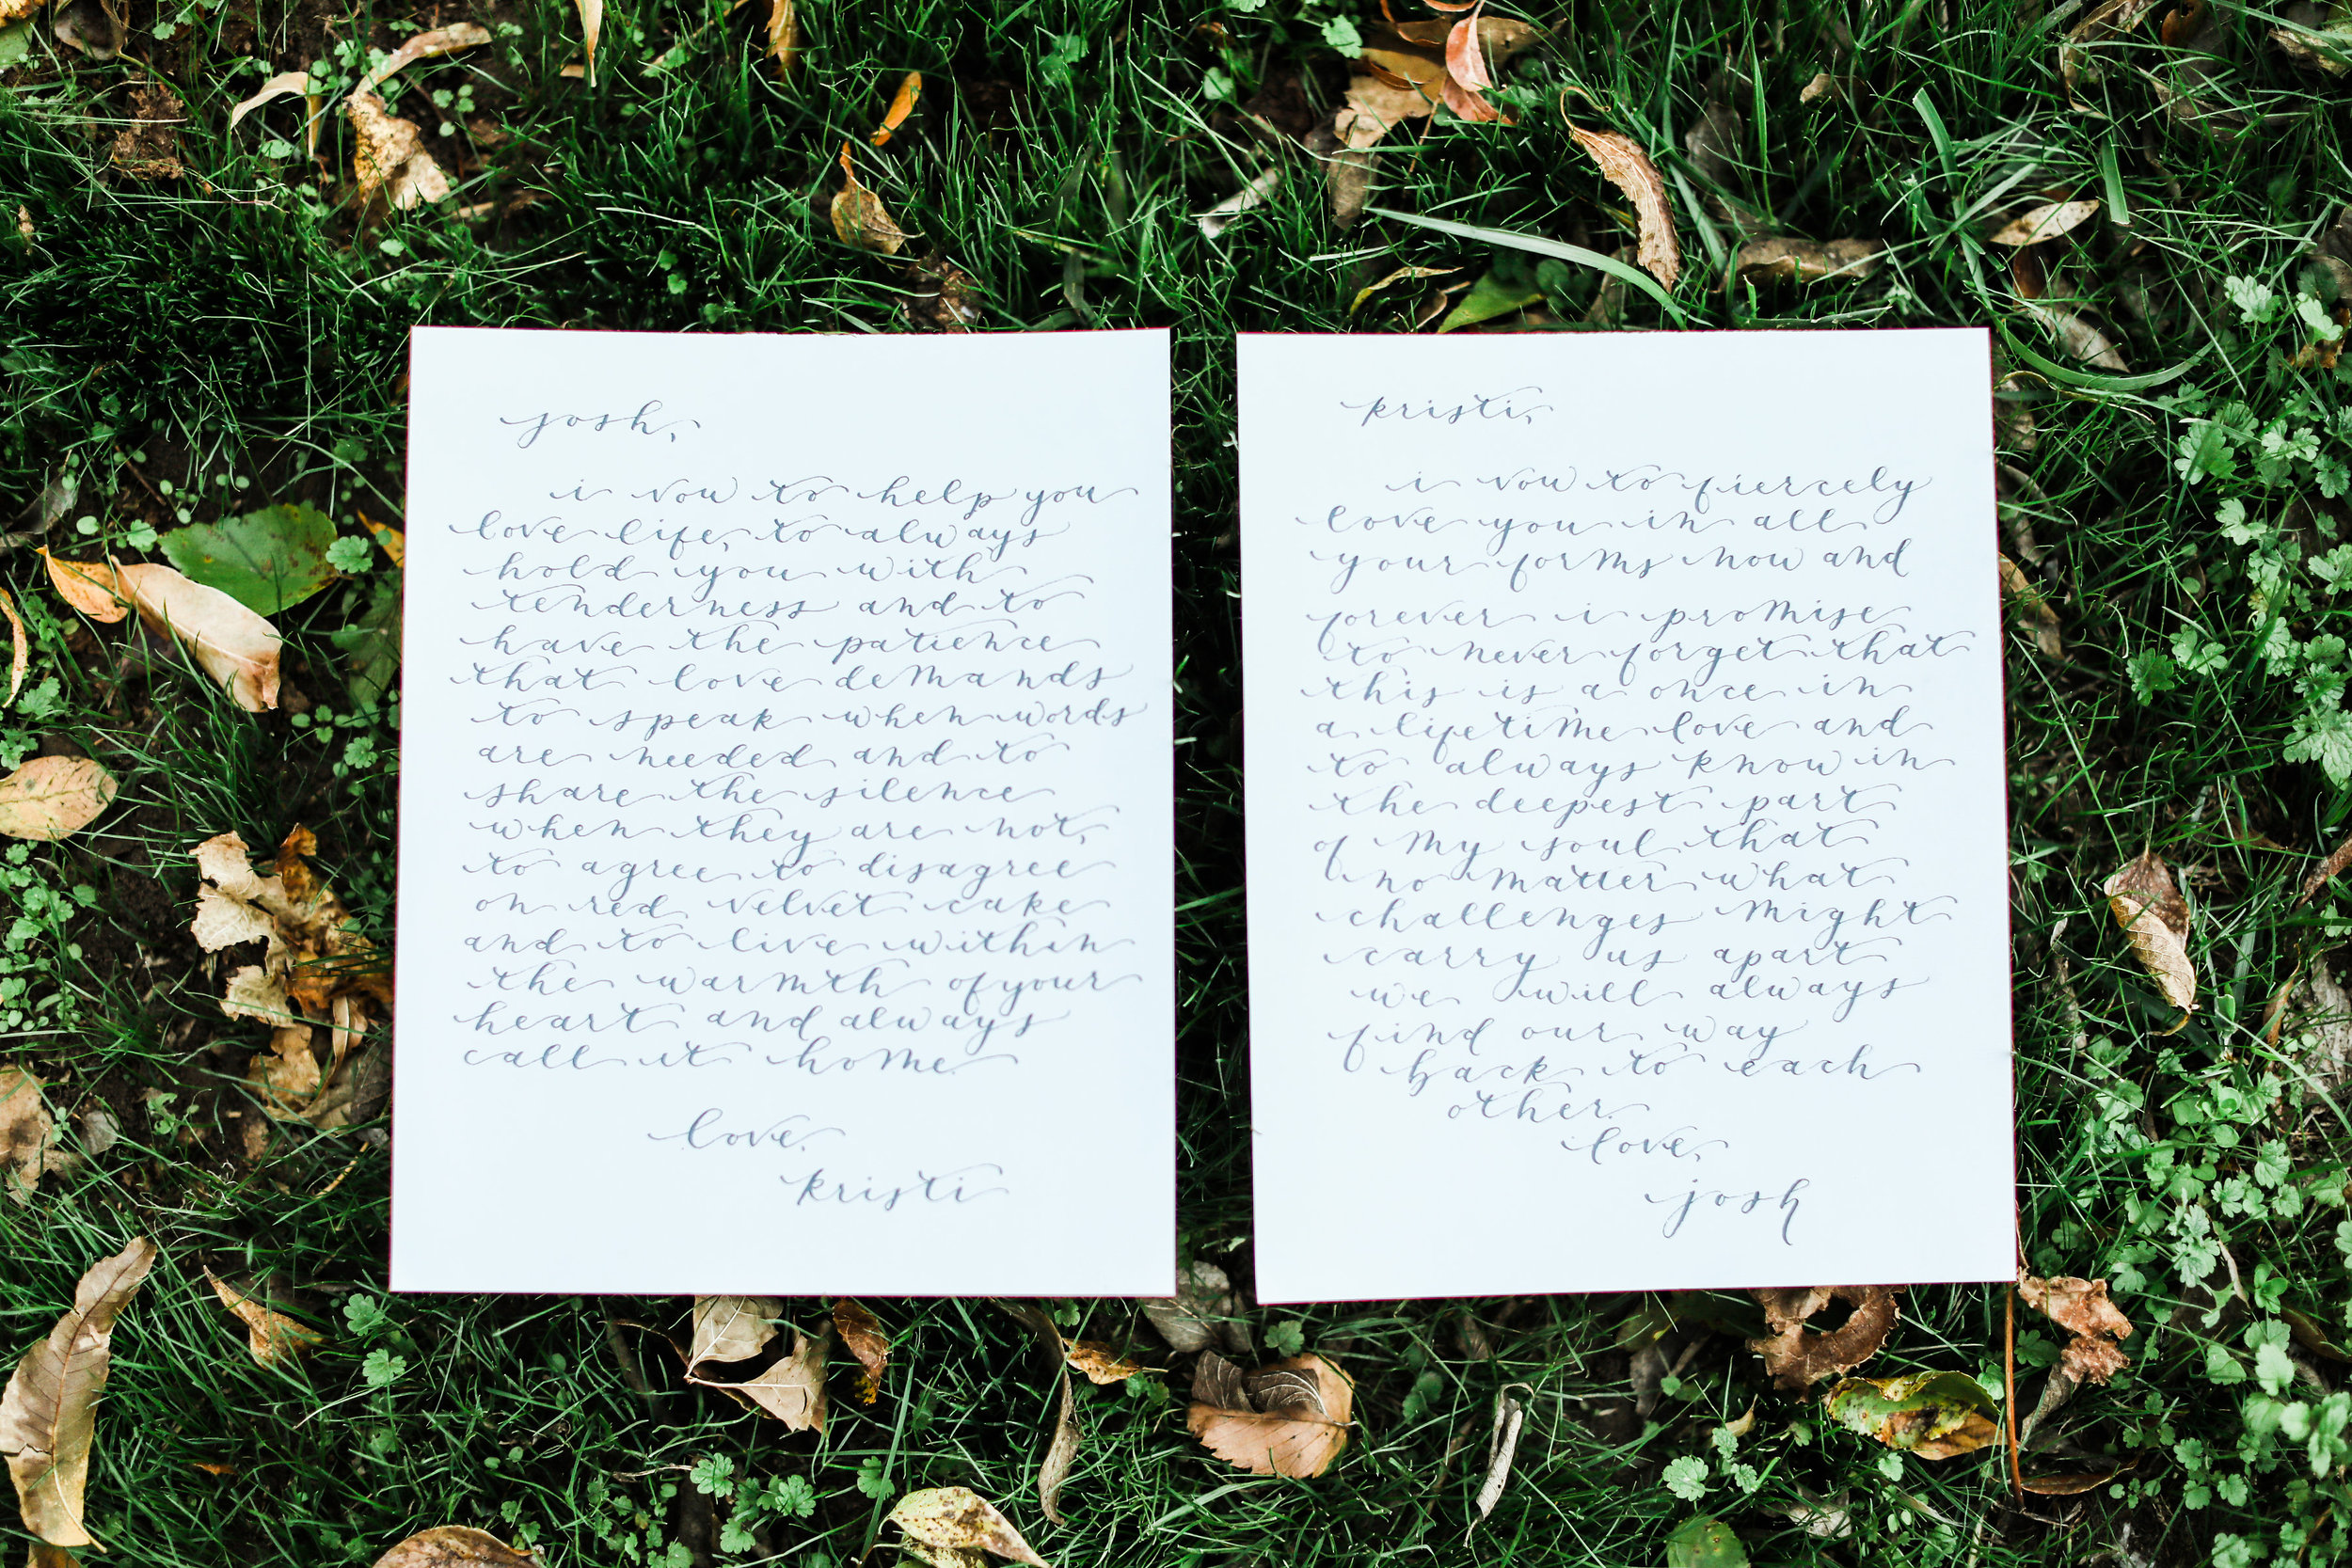 josh,
i vow to help you
love life, to always
hold you with
tenderness and to
have the patience
that love demands
to speak when words
are needed and to
share the silence
when they are not,
to agree to disagree
on red velvet cake
and to live within
the warmth of your
heart and always
call it home.
love,
kristi
kristi,
i vow to fiercely
love you in all
your forms now and
forever i promise
to never forget that
this is a once in
a lifetime love and
to always know in
the deepest part
of my soul that
no matter what
challenges might
carry us apart
we will always
find our way
back to each
other.
love,
josh